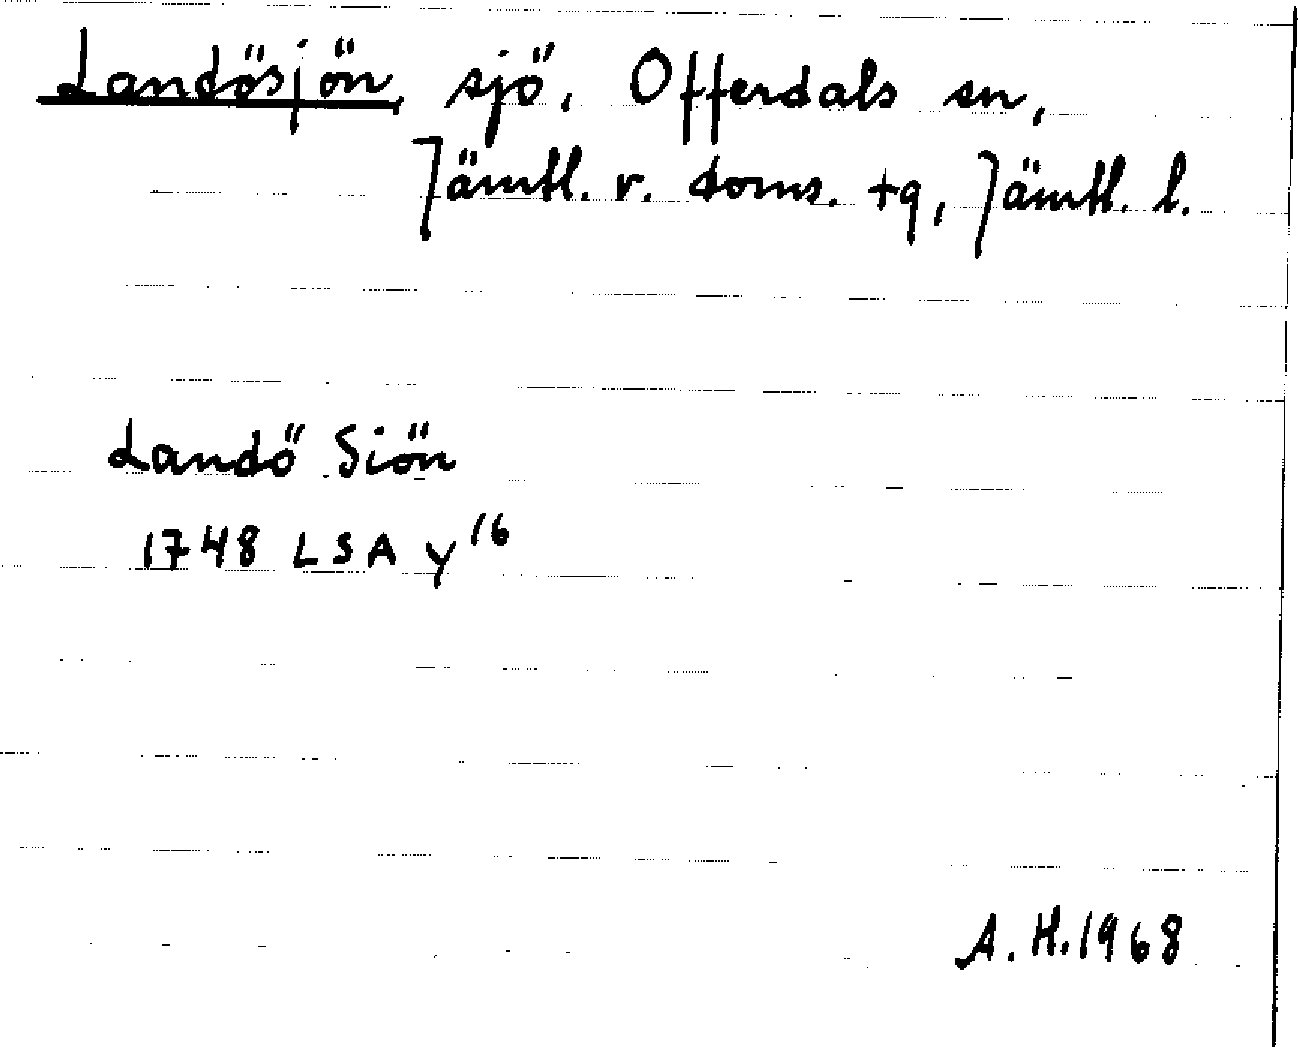 Landösjön, sjö, Offerdals sn,
Jämtl. v. doms. tg, Jämtl. l.
Landö Siön
1748 LSA y¹⁶
A. H. 1968